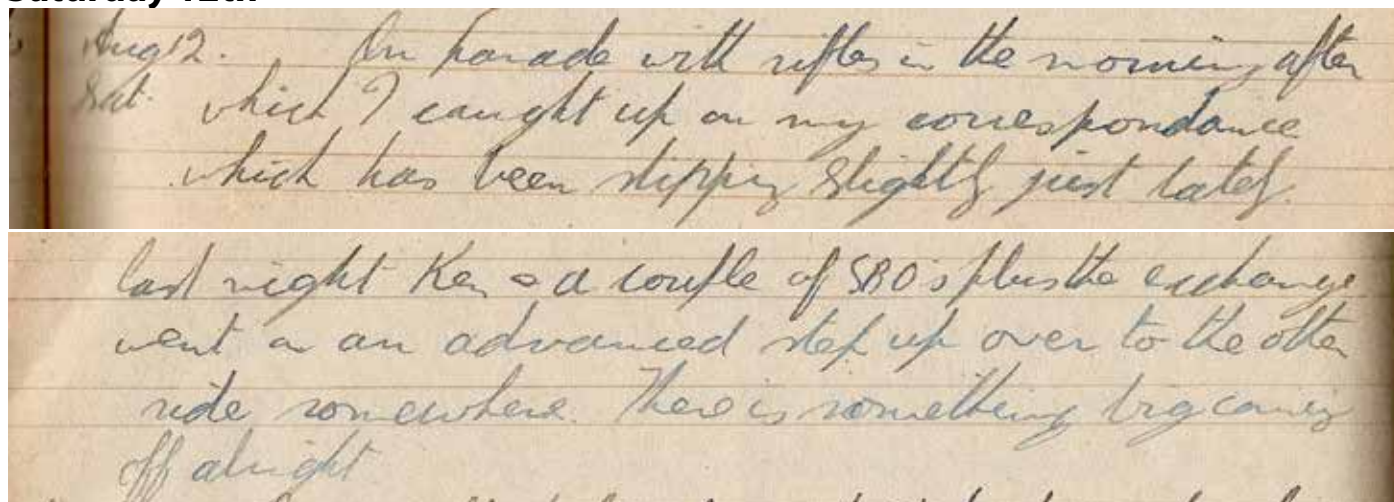 Saturday 12th
Aug 12. On parade with rifles in the morning after
Sat. which I caught up on my correspondance
which has been slipping slightly just lately.
last night Ken & a couple of SBO's plus the exchange
went on an advanced step up over to the other
side somewhere. There is something big coming
off alright